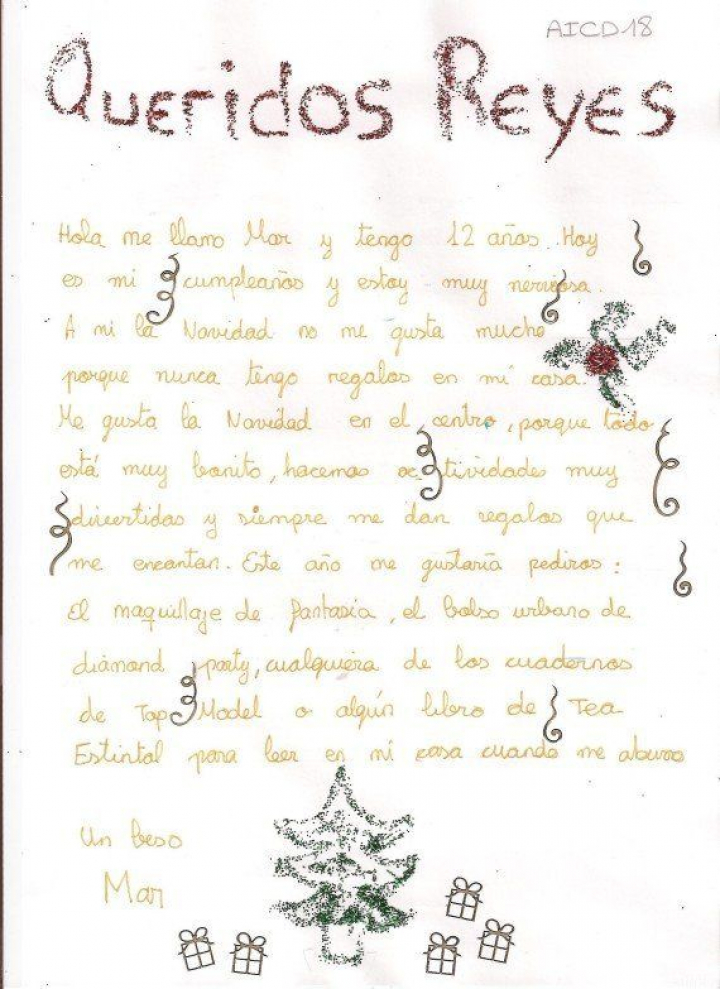 AICD18
Queridos Reyes
Hola me llamo Mar y tengo 12 años. Hoy
es mi cumpleaños y estoy muy nerviosa.
A mi la Navidad no me gusta mucho
porque nunca tengo regalos en mi casa.
Me gusta la Navidad en el centro, porque todo
está muy bonito, hacemos actividades muy
divertidas y siempre me dan regalos que
me encantan. Este año me gustaría pediros:
El maquillaje de fantasia, el bolso urbano de
diamand party, cualquiera de los cuadernos
de Top Model o algún libro de Tea
Estintal para leer en mi casa cuando me aburro
Un beso
Mar